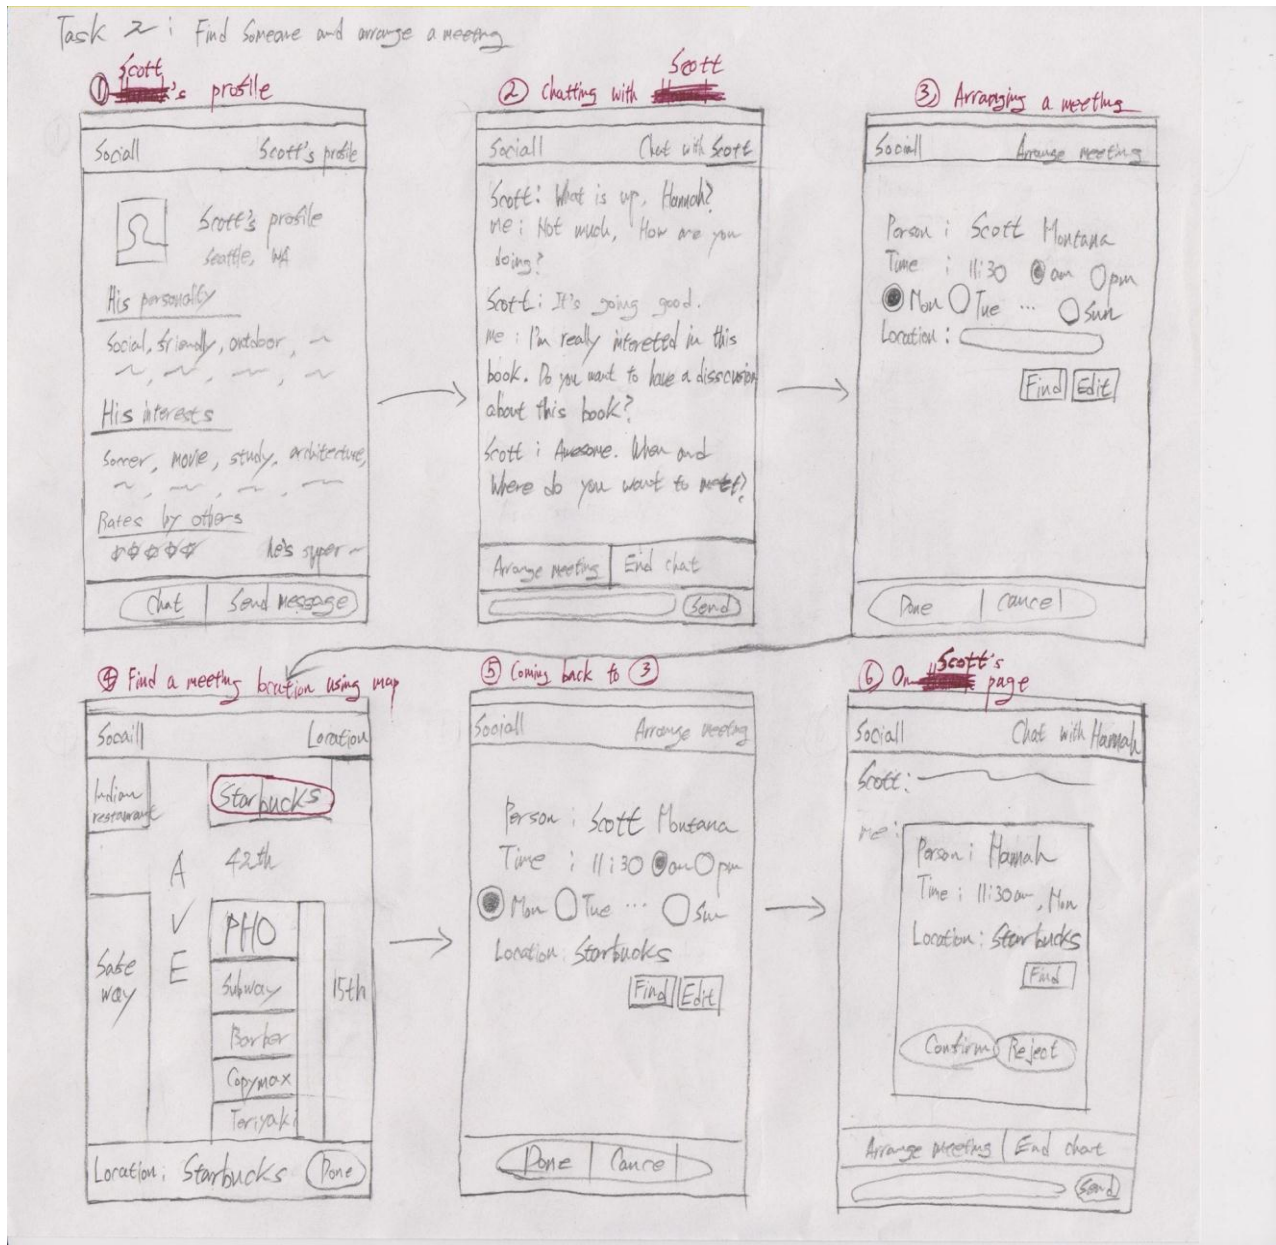 Task 2: Find Someone and arrange a meeting
Scott
① 's profile
Sociall Scott's profile
Scott's profile
Seattle, WA
His personality
Social, friendly, outdoor,
His interests
Soccer, movie, study, architecture,
Rates by others
he's super
Chat Send message
Scott
② Chatting with
Sociall Chat with Scott
Scott: What is up, Hannah?
me: Not much, How are you
doing?
Scott: It's going good.
me: I'm really interetted in this
book. Do you want to have a disscusion
about this book?
Scott: Awesome. When and
Where do you want to meet?
Arrange meeting End chat
Send
③ Arranging a meeting
Sociall Arrange meeting
Person: Scott Montana
Time: 11:30 am pm
Mon Tue ... Sun
Location:
Find Edit
Done Cancel
④ Find a meeting location using map
Sociall Location
Indian
restaurant
Starbucks
42th
AVE
Safe
way
PHO
Subway
Barber
Copymax
Teriyaki
15th
Location: Starbucks Done
⑤ Coming back to ③
Sociall Arrange meeting
Person: Scott Montana
Time: 11:30 am pm
Mon Tue ... Sun
Location: Starbucks
Find Edit
Done Cancel
Scott's
⑥ On page
Sociall Chat with Hannah
Scott:
me:
Person: Hannah
Time: 11:30 am, Mon
Location: Starbucks
Find
Confirm Reject
Arrange meeting End chat
Send